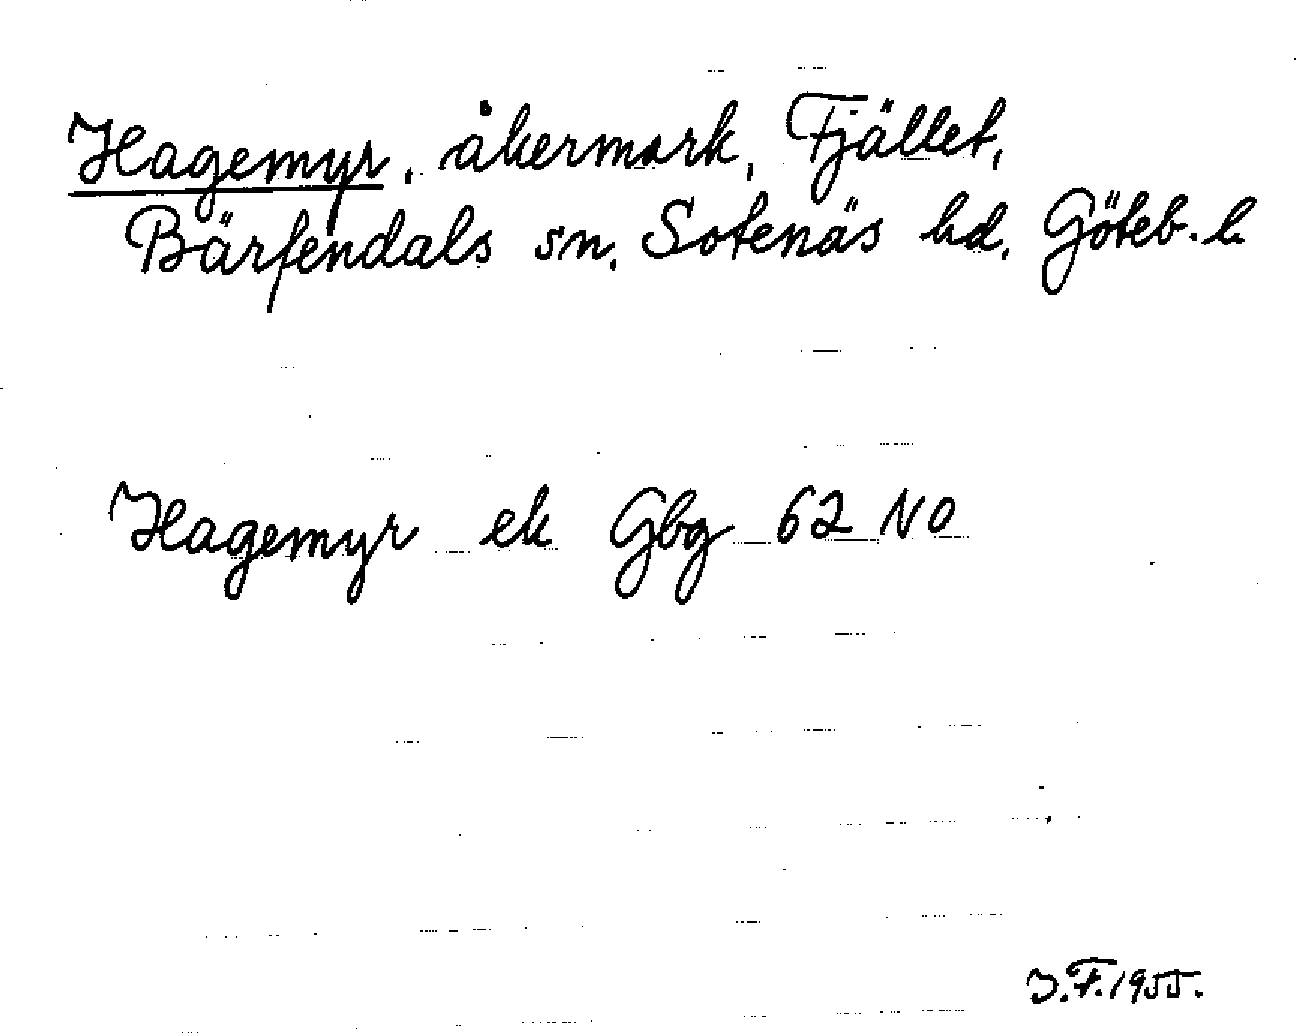 Hagemyr, åkermark, Fjället,
Bärfendals sn, Sotenäs hd, Göteb. l.
Hagemyr ek Gbg 62 NO
J.F. 1955.